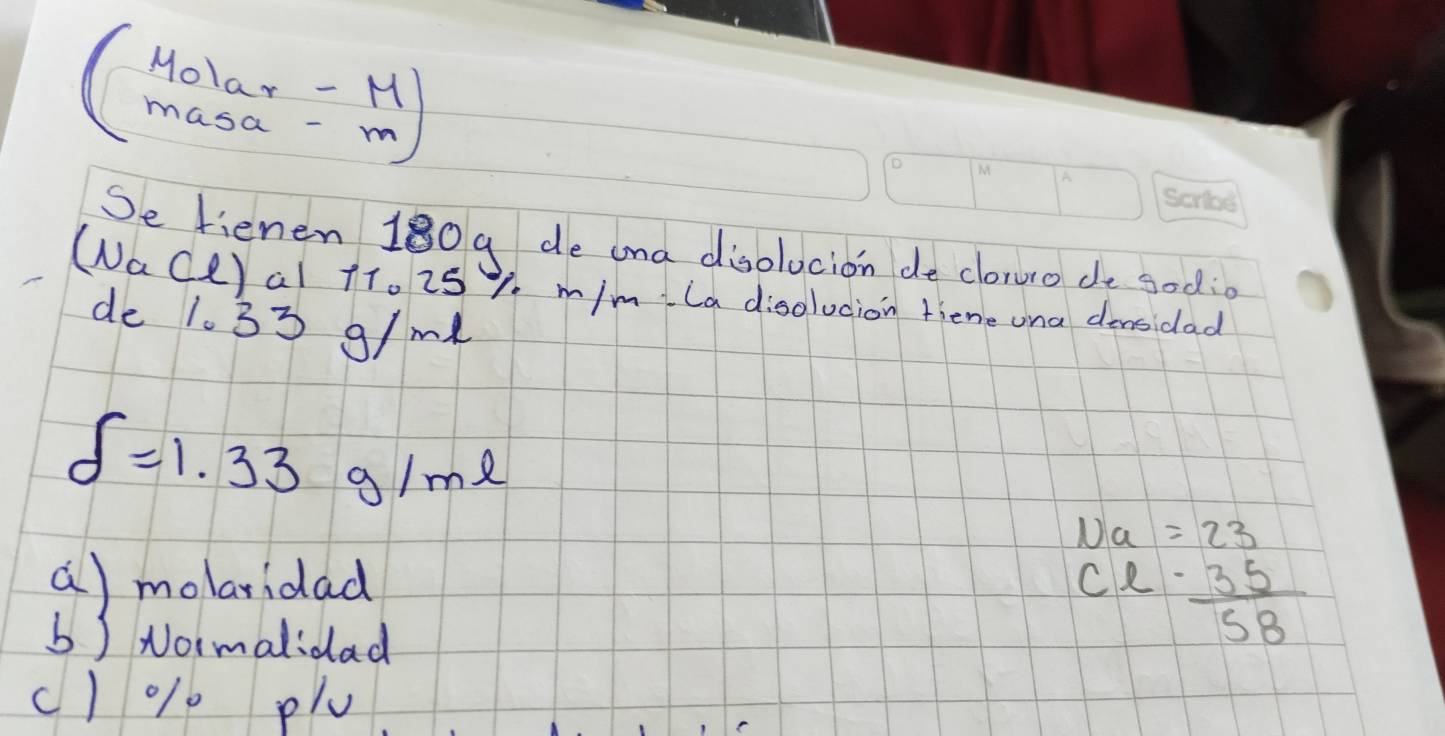 (Molar - M)
(masa - m)
D M A
Scribe
Se tienen 180g de una disolución de cloruro de sodio
(NaCl) al 11.25% m/m. La disolución tiene una densidad
de 1.33 g/ml
δ=1.33 g/ml
Na = 23
Cl - 35
58
a) molaridad
b) Normalidad
c) % p/v